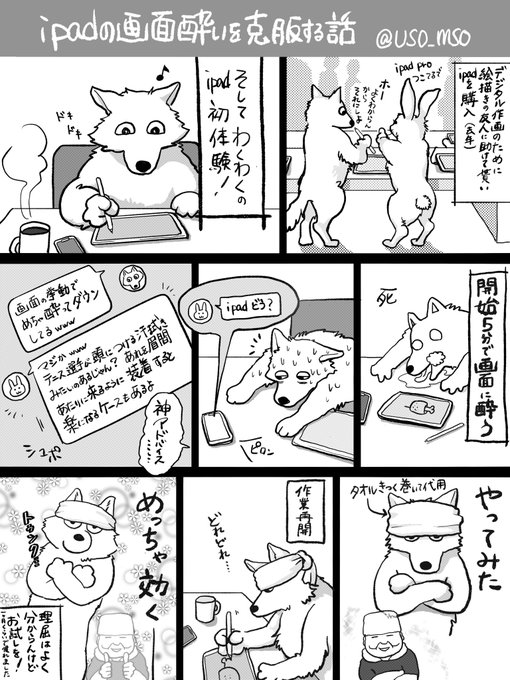 ipadの画面酔いを克服する話
@USO_MSO
デジタル作画のために
絵描きの友人に助けて貰い
ipadを購入
ipad pro
つこてるで
ホー
よくわからん
から
それにしよ
そして わくわくの
ipad 初体験!
ドキ
ドキ
開始5分で画面に酔う
死
ipadどう?
ピロン
画面の挙動で
めちゃ酔ってダウン
してるwww
マジかwww
テニス選手が頭につける汗拭き
みたいのあるじゃん? あれを眉間
あたりに来るように装着すると
楽になるケースもあるよ
シュポ
神アドバイス……
やってみた
タオルきつく巻いて代用
作業再開
どれどれ…
めっちゃ効く
トゥンク…
理屈はよく
分からんけど
お試しを!